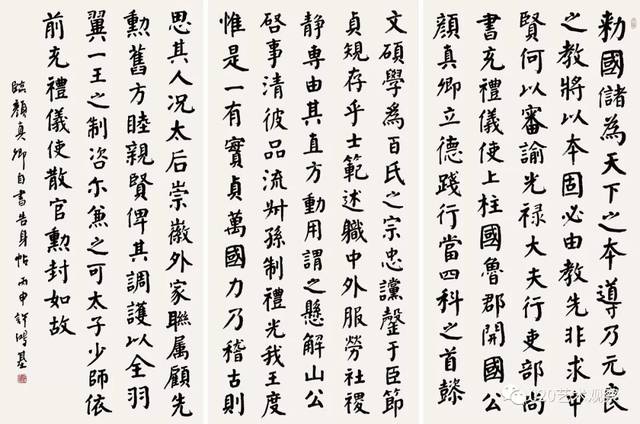 勅國儲為天下之本導乃元良
之教將以本固必由教先非求中
賢何以審諭光禄大夫行吏部尚
書充禮儀使上柱國魯郡開國公
顏真卿立德踐行當四科之首懿
文碩學為百氏之宗忠讜罄于臣節
貞規存乎士範述職中外服勞社稷
静専由其直方動用謂之懸解山公
啓事清彼品流叔孫制禮光我王度
惟是一有實貞萬國力乃稽古則
思其人況太后崇徽外家聯属顧先
勲舊方睦親賢俾其調護以全羽
翼一王之制咨尔兼之可太子少師依
前充禮儀使散官勲封如故
臨顏真卿自書告身帖 丙申 舒鴻基
120艺术观察